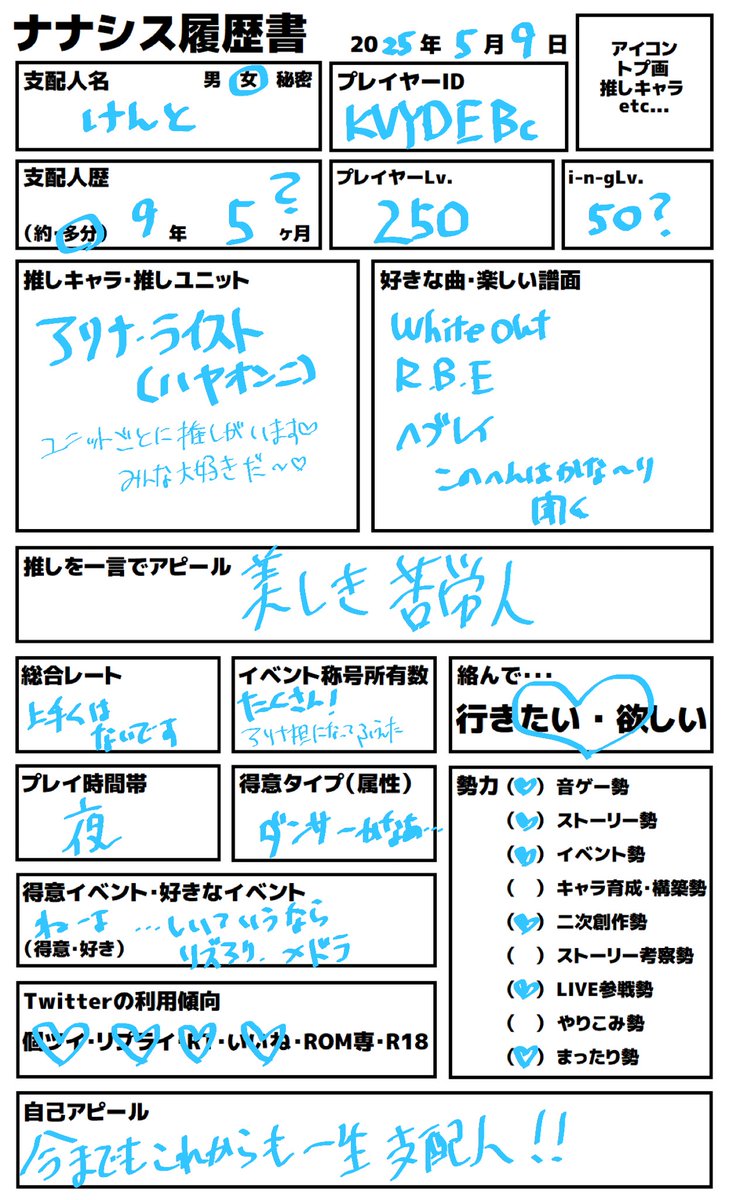 ナナシス履歴書
2025年5月9日
支配人名 男 女 秘密
けんと
プレイヤーID
KVYDEBc
アイコン
トプ画
推しキャラ
etc...
支配人歴
(約・多分) 9年 5ヶ月 ?
プレイヤーLv.
250
i-n-gLv.
50?
推しキャラ・推しユニット
アリナ・ライスト
(ハヤオンニ)
ユニットごとに推しがいます♡
みんな大好きだ〜♡
好きな曲・楽しい譜面
White Out
R.B.E
ヘブレイ
このへんはかな〜り
聞く
推しを一言でアピール
美しき苦労人
総合レート
上手くは
ないです
イベント称号所有数
たくさん!
アリナ担になってふえた
絡んで・・・
行きたい・欲しい
プレイ時間帯
夜
得意タイプ(属性)
ダンサーかなぁ…
勢力(♡)音ゲー勢
(♡)ストーリー勢
(♡)イベント勢
( )キャラ育成・構築勢
(♡)二次創作勢
( )ストーリー考察勢
(♡)LIVE参戦勢
( )やりこみ勢
(♡)まったり勢
得意イベント・好きなイベント
(得意・好き)
ねーよ …しいていうなら
リズろり、メドラ
Twitterの利用傾向
個ツイ・リプライ・RT・いいね・ROM専・R18
自己アピール
今までもこれからも一生支配人!!